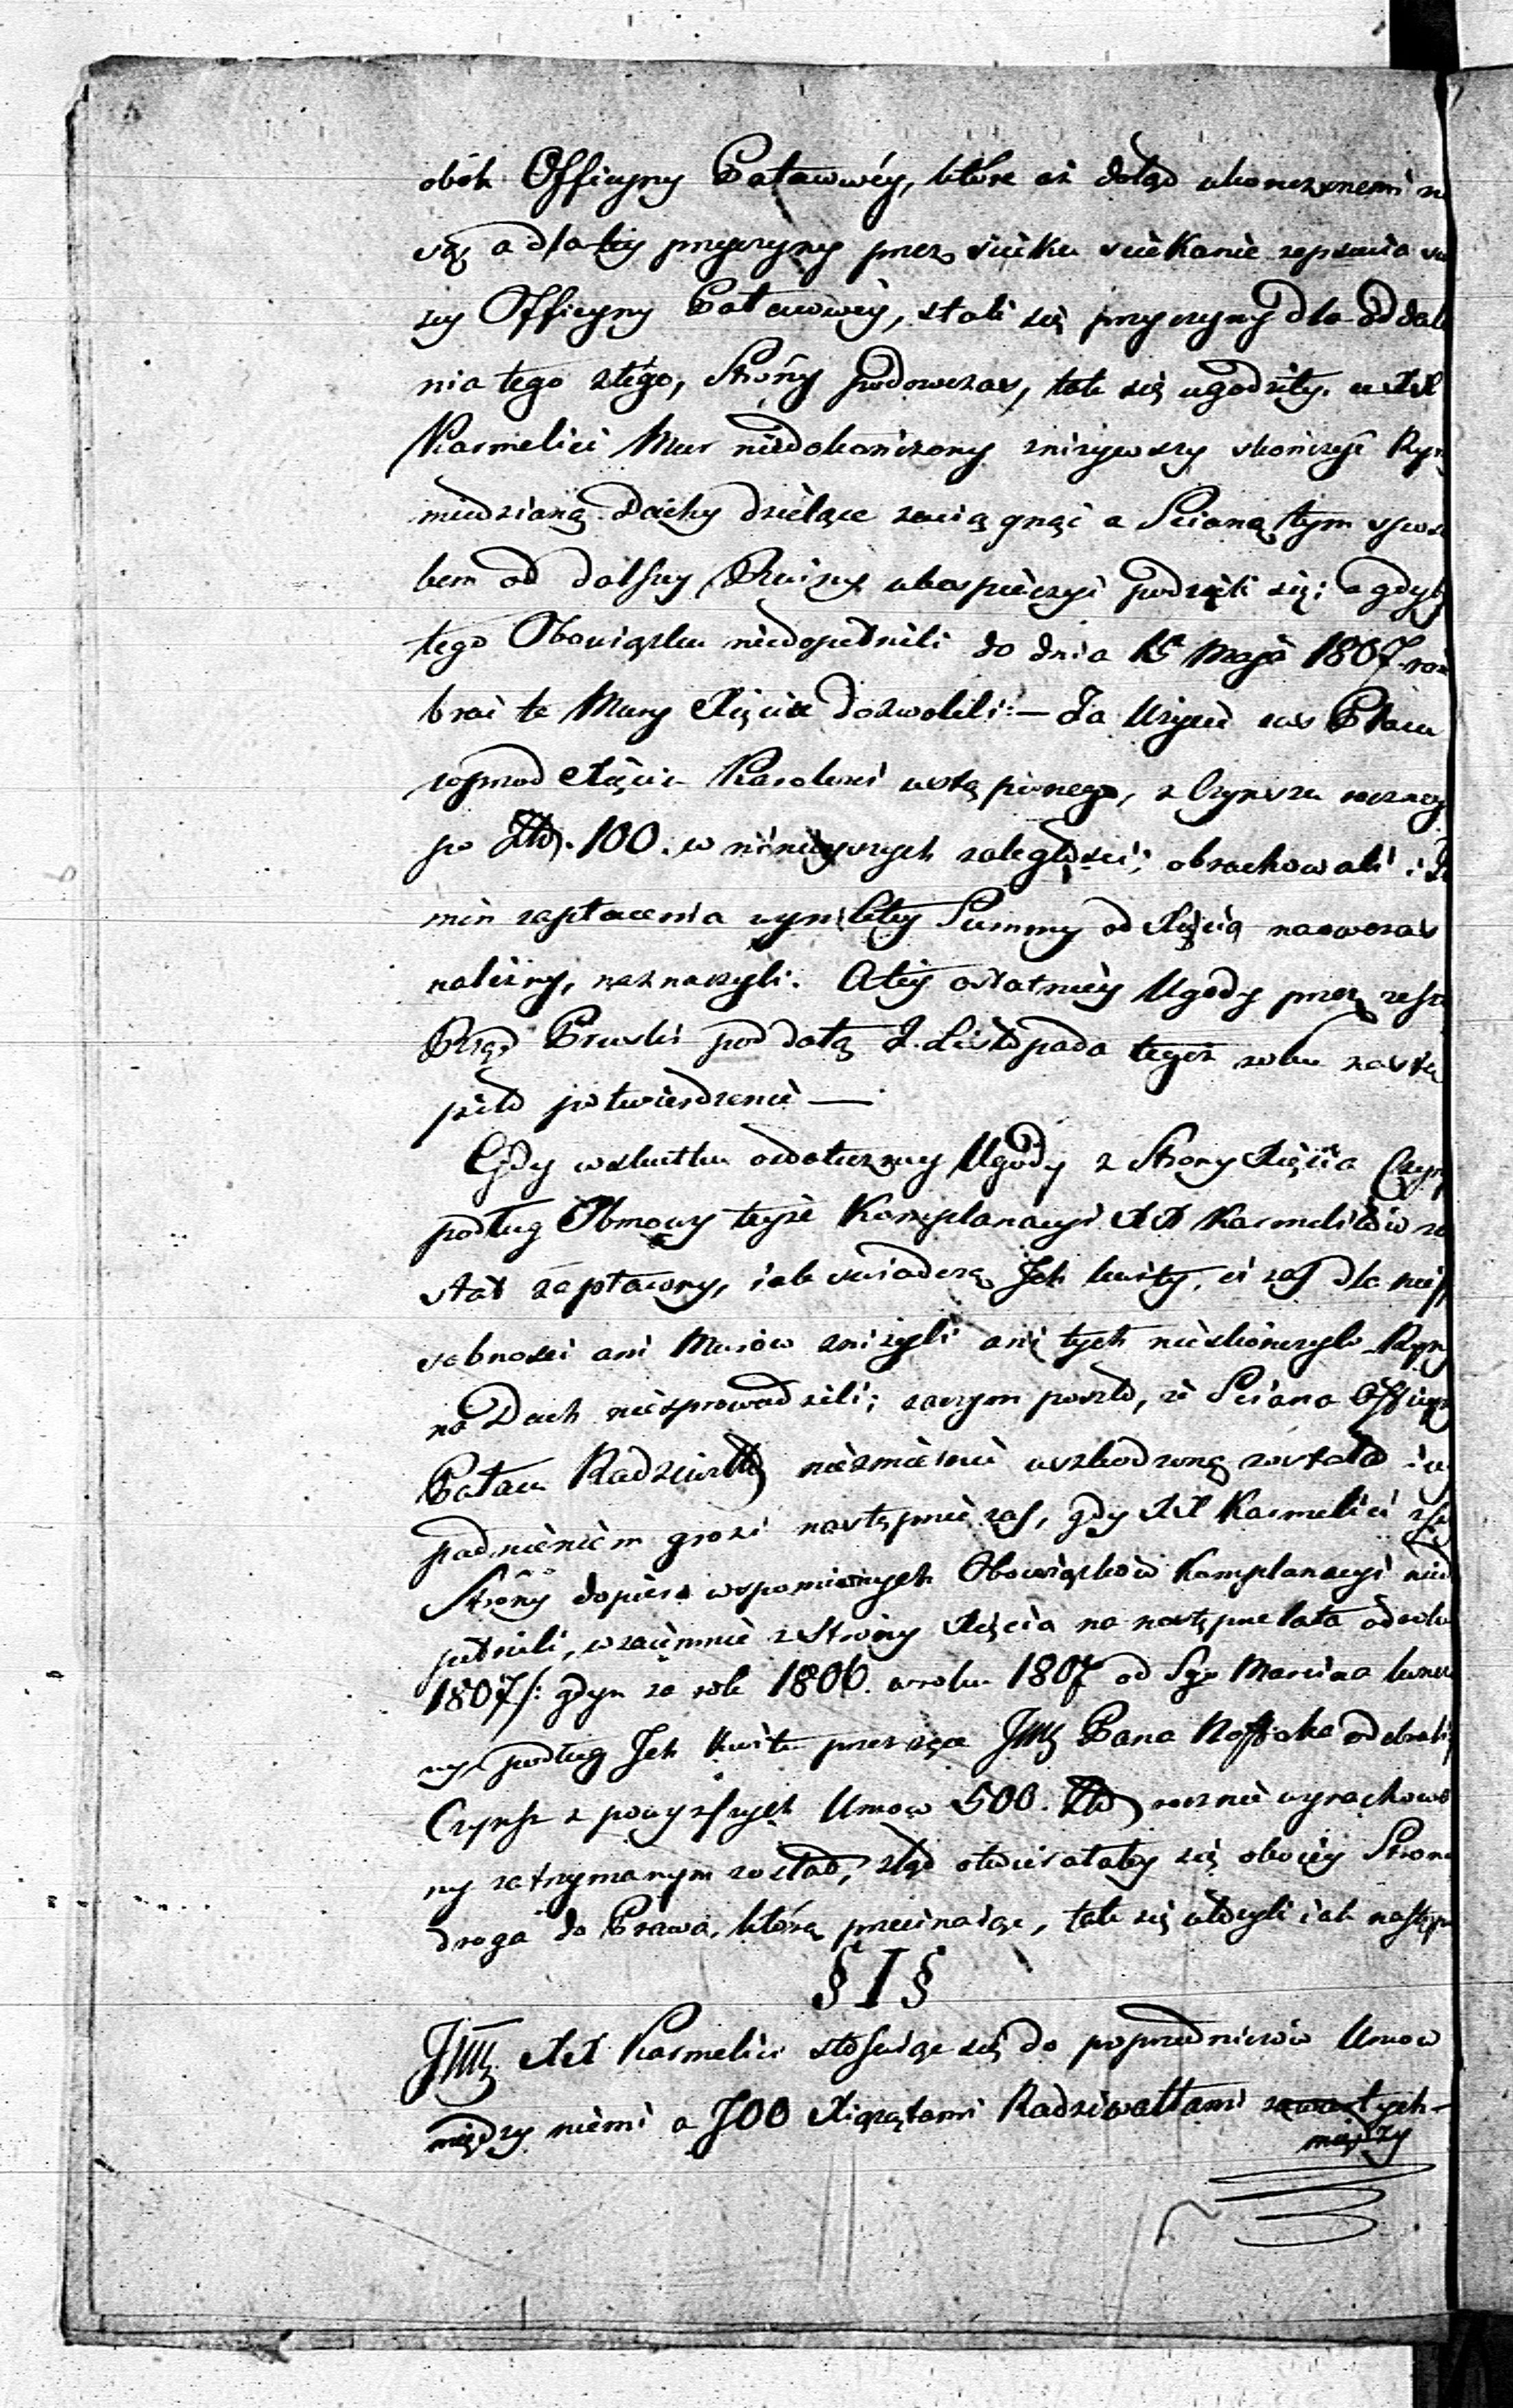 obok Officyny Pałacowéy, które aż dotąd ukonczonemi n
są, a dla tey przyczyny przez ścieku zepsucia
zy Officyny Pałacowéy, stali się przyczyną dla oddale
nia tego złégo, Stróny podowczas, tak się ugodziły. a XX
Karmelici Mur niedokończony zniżywszy skończyć Ryn
miedzianą Dachy dzielące zaciągnąć a Scianę tym sposo
bem od dalszey Ruiny ubespieczyć podieli się; a gdyby
tego Obowiązku niedopełnili do dnia 15 Maja 1807 roz
brać te Mury Xięciu dozwolili: — Za Użycie zaś Placu
wprzod Xięciu Karolowi ustąpionego, z Czynszu roczneg
po Złł. 100. w zaległości; obrachowali i Te
min zapłacenia tey Summy od Xięcia naowczas
należny, naznaczyli. A tey ostatniéy Ugody przez zeszł
Rząd Pruski pod datą 2. Listopada tegoż roku nastą
piło potwierdzenie —
Gdy w skutku ostateczney Ugody z Strony Xięcia Czyn
podług Obmowy teyże Komplanacyi XX Karmelitów zo
stał zapłacony, iak swiadczą Ich kwity, ci zaś dla niesp
sobności ani Murów zniżyli ani tych nieskończyli Ryny
na Dach niesprowadzili; zaczym poszło, że Sciana Officyn
Pałacu Radziwiłł niezmiernie uszkodzoną została i u
padnieniem grozi następnie zaś, gdy XX Karmelici z sw
Stróny dopiero wspomnionych Obowiązków Komplanacyi nied
pełnili, wzaiemnie z Stróny Xięcia na następne lata od roku
1807 /: gdyż za rok 1806. w roku 1807 od Sgo Marcina
ny podług Ich kwitu przez ręce JMę Pana odebrali
Czynsz z powyższych Umow 500. Złł rocznie wyrachowa
ny zatrzymanym został, ztąd otwierałaby się obocy Strono
droga do Prawa, którą przecinaiąc, tak się ułożyli iak następ
§ I §
JMę XX Karmelici stosuiąc się do poprzedniczów Umow
między niemi a JOO Xiążętami Radziwiłłami zawartych
między